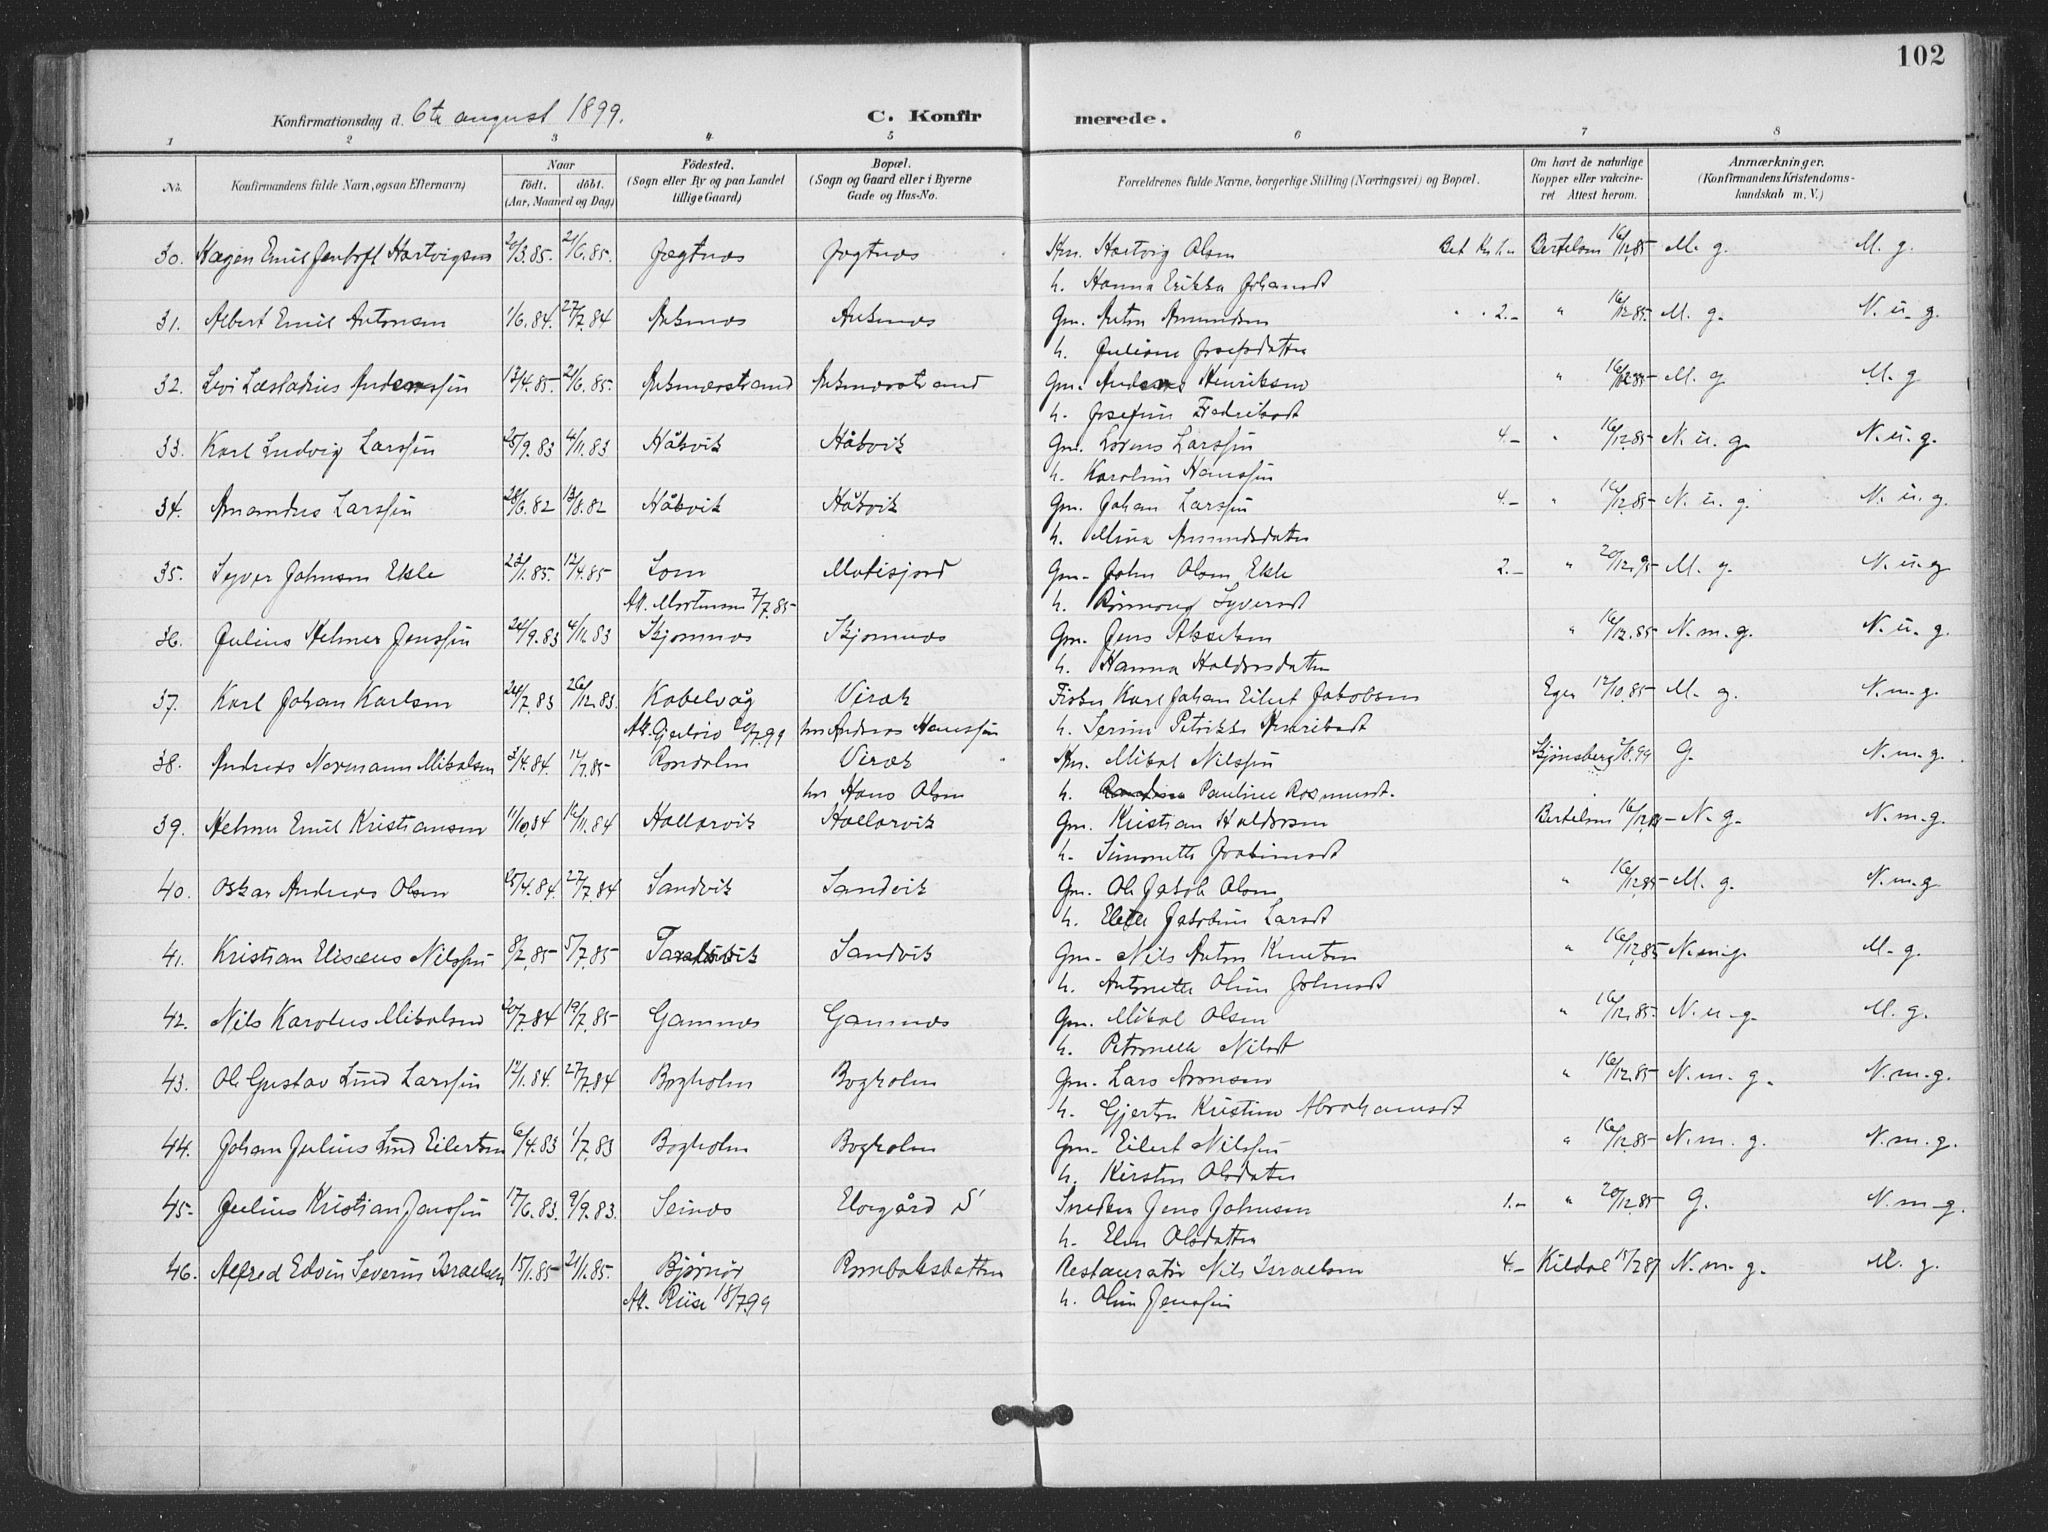 102
Konfirmationsdag d. 6te august 1899. C. Konfirmerede.
1 2 3 4 5 6 7 8
No. Konfirmandens fulde Navn, ogsaa Efternavn) Naar født. døbt. (Aar, Maaned og Dag) Födested. (Sogn eller By og paa Landet tillige Gaard) Bopæl. (Sogn og Gaard eller i Byerne Gade og Hus-No. Forældrenes fulde Navne, borgerlige Stilling (Næringsvei) og Bopæl. Om havt de naturlige Kopper eller vakcineret Attest herom. Anmærkninger. (Konfirmandens Kristendomskundskab m. V.)
30. Hagen Emil Jentoft Hartvigsen 20/3.85. 21/6.85. Jægtnes Jægtnes Km. Hartvig Olsen Bet Kr 1.- Bertelsen 16/12.85 M. g. M. g.
h. Hanna Erikka Johansdt
31. Albert Emil Antonsen 1/6.84. 27/7.84 Ankenes Ankenes Gm. Anton Amundsen " " 2.- " 16/12.85. M. g. N. u. g.
h. Juliane Josefsdatter
32. Levi Læstadius Anderssen 13/4.85. 21/6.85. Ankenesstrand Ankenesstrand Gm. Anders Henriksen " 16/12.85 M. g M. g
h. Josefine Fredriksdt
33. Karl Ludvig Larssen 25/9.83 4/11.83 Håkvik Håkvik Gm. Lorens Larssen 4.- " 16/12.85 N. u. g N. u. g.
h. Karoline Hanssen
34. Amandus Larssen 28/6.82 13/8.82 Håkvik Håkvik Gm. Johan Larssen 4.- " 16/12.85 N. u. g. N. u. g.
h. Mina Amundsdatter
35. Syver Johnsen Ekle 23/1.85. 12/4.85 Lom Molisjord Gm. John Olsen Ekle 2.- " 20/12.95 M. g. N. u. g
Att. Mortensen 7/7.85 h. Rönnoug Syversdt
36. Julius Helmer Jenssen 24/9.83 4/11.83 Skjomnes Skjomnes Gm. Jens Akselsen " 16/12.85 N. m. g. N. u. g.
h. Hanna Haldorsdatter
37. Karl Johan Karlsen 24/7.83 26/12.83. Kabelvåg Virak Fisker Karl Johan Eilert Jakobsen Eger 12/10.85 M. g. N. m. g.
Att. Gjelvio 20/7.99 hos Andreas Hanssen h. Serine Petrikke Henriksdt
38. Andreas Normann Mikalsen 3/4.84. 12/7.85 Rondalen Virak Km. Mikal Nilssen Skjönsberg 2/8.99 G. N. m. g.
hos Hans Olsen h. Pauline Rasmusdt.
39. Helmer Emil Kristiansen 11/10.84 16/11.84 Hallarvik Hallarvik Gm. Kristian Haldorsen Bertelsen 16/12.84 N. g. N. m. g.
h. Simonette Joakimsdt
40. Oskar Andreas Olsen 25/4.84. 27/7.84 Sandvik Sandvik Gm. Ole Jakob Olsen " 16/12.85 M. g. N. m. g.
h. Elette Jakobine Larsdt
41. Kristian Elisæus Nilssen 8/2.85 5/7.85 Sandvik Gm. Nils Anton Knutsen " 16/12.85 N. m. g. M. g.
h. Antonette Oline Johnsdt
42. Nils Karolus Mikalsen 20/7.84 19/7.85 Gamnes Gamnes Gm. Mikal Olsen " 16/12.85. N. u. g. M. g.
h. Petronelle Nilsdt
43. Ole Gustav Lind Larssen 12/1.84. 27/7.84 Bogholm Bogholm Gm. Lars Aronsen " 16/12.85 N. m. g. N. m. g.
h. Gjertru Kristine Abrahamsdt
44. Johan Julius Lind Eilertsen 6/4.83 1/7.83 Bogholm Bogholm Gm. Eilert Nilssen " 16/12.85 N. m. g. N. m. g.
h. Kirsten Olsdatter
45. Julius Kristian Jenssen 17/6.83. 9/9.83. Seines Elvegård S Snedker Jens Johnsen 1.- " 20/12.85 G. N. m. g.
h. Elen Olsdatter
46. Alfred Edvin Severin Israelsen 15/1.85 21/11.85. Bjørnör Rombaksbotten Restauratör Nils Israelsen 4.- Kildal 15/12.87 N. m. g. M. g.
Att. Riise 18/7.99 h. Oline Jenssen